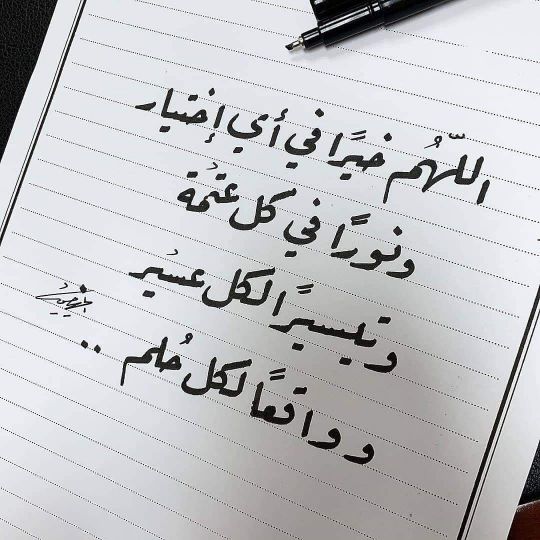 اللّهُم خيرًا في أي إختيار
ونورًا في كل عتمُة
وتيسيرًا لكل عسيُر
وواقعًا لكل حُلم ..